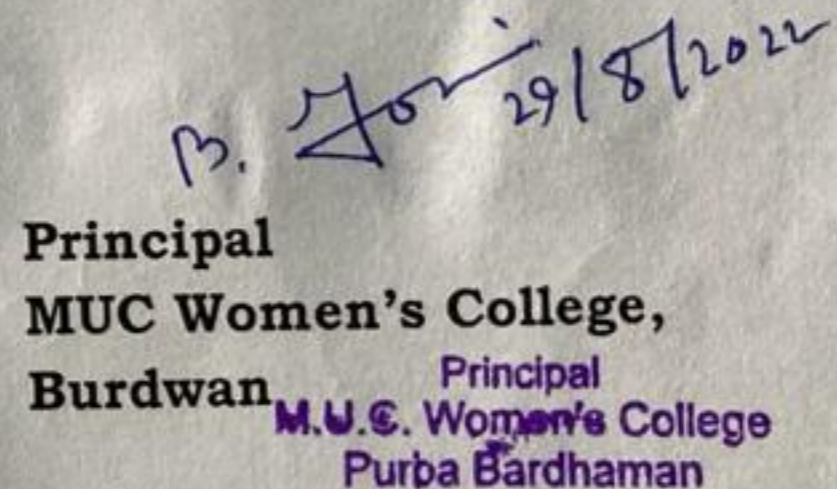 B. 29/8/2022
Principal
MUC Women's College,
Burdwan
Principal
M.U.C. Women's College
Purba Bardhaman